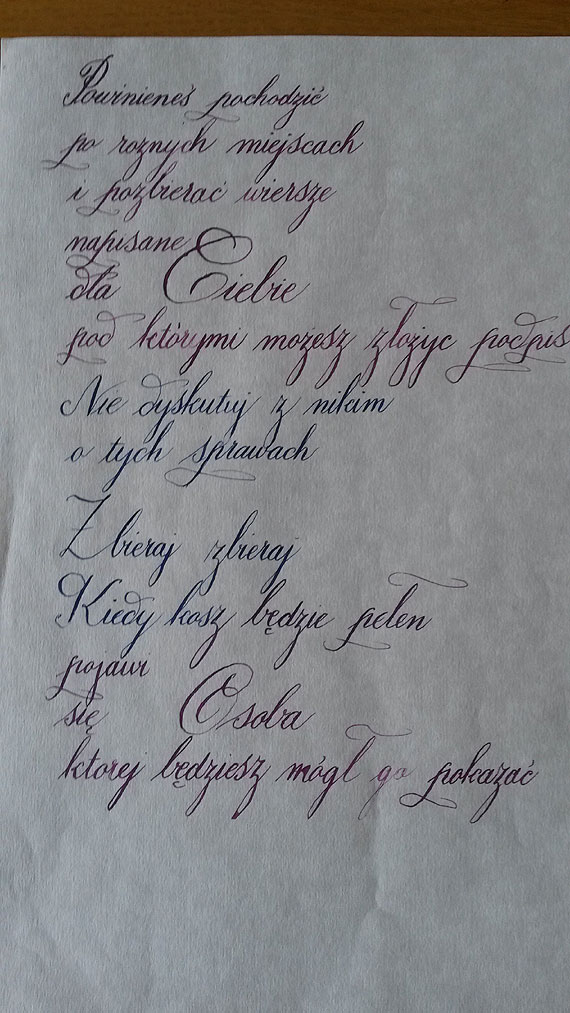 Powinieneś pochodzić
po roznych miejscach
i pozbierać wiersze
napisane
dla Ciebie
pod którymi możesz złożyc podpis
Nie dyskutuj z nikim
o tych sprawach
Zbieraj zbieraj
Kiedy kosz będzie pełen
pojawi
się Osoba
ktorej będziesz mógł go pokazać